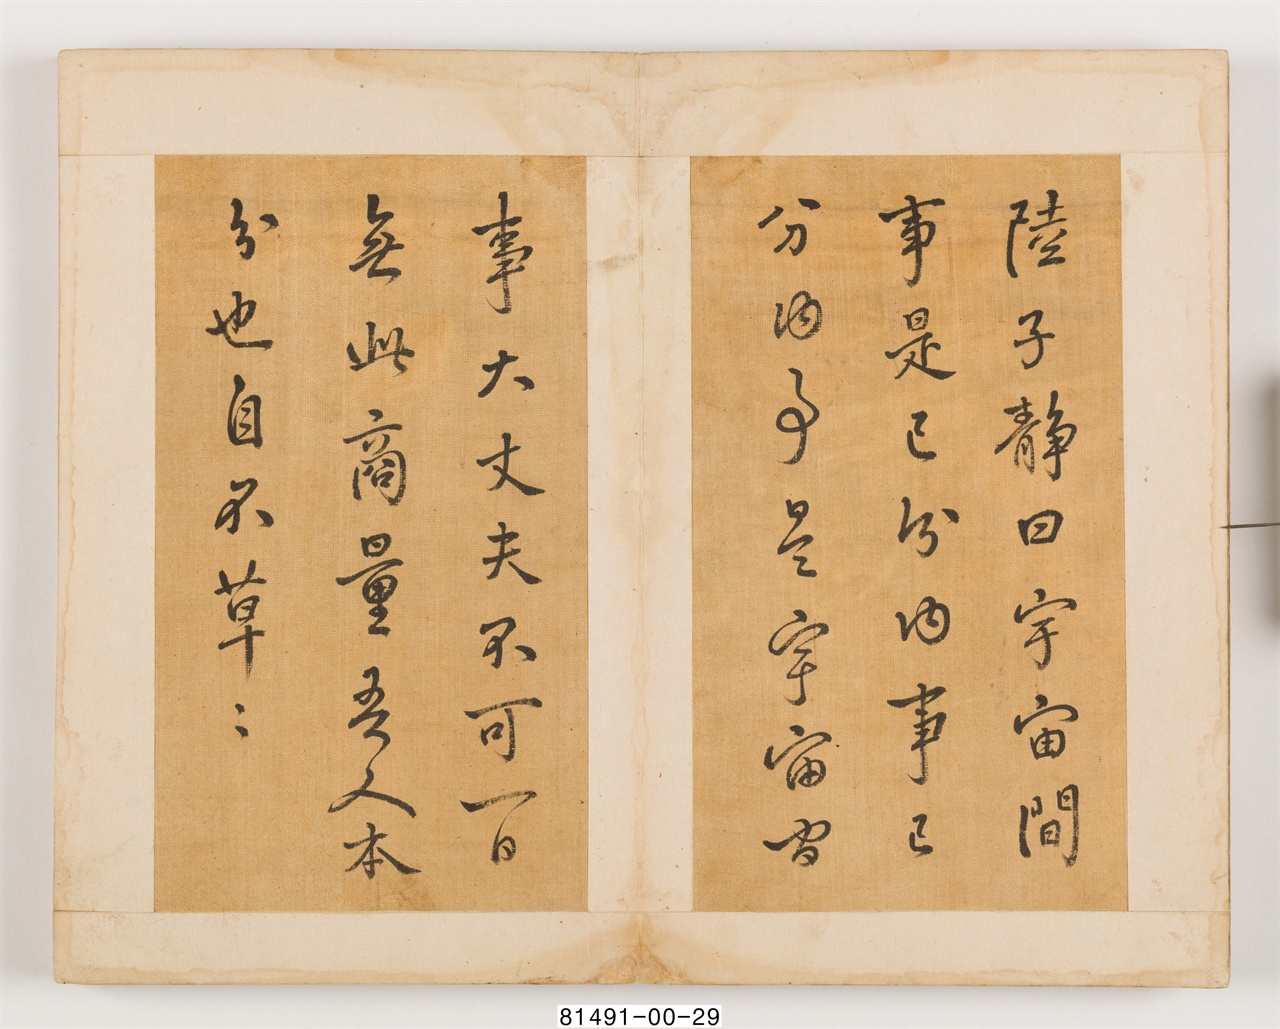 陸子靜曰宇宙間
事是己分內事己
分內事是宇宙間
事大丈夫不可一日
無此商量吾人本
分也自不草〻
81491-00-29